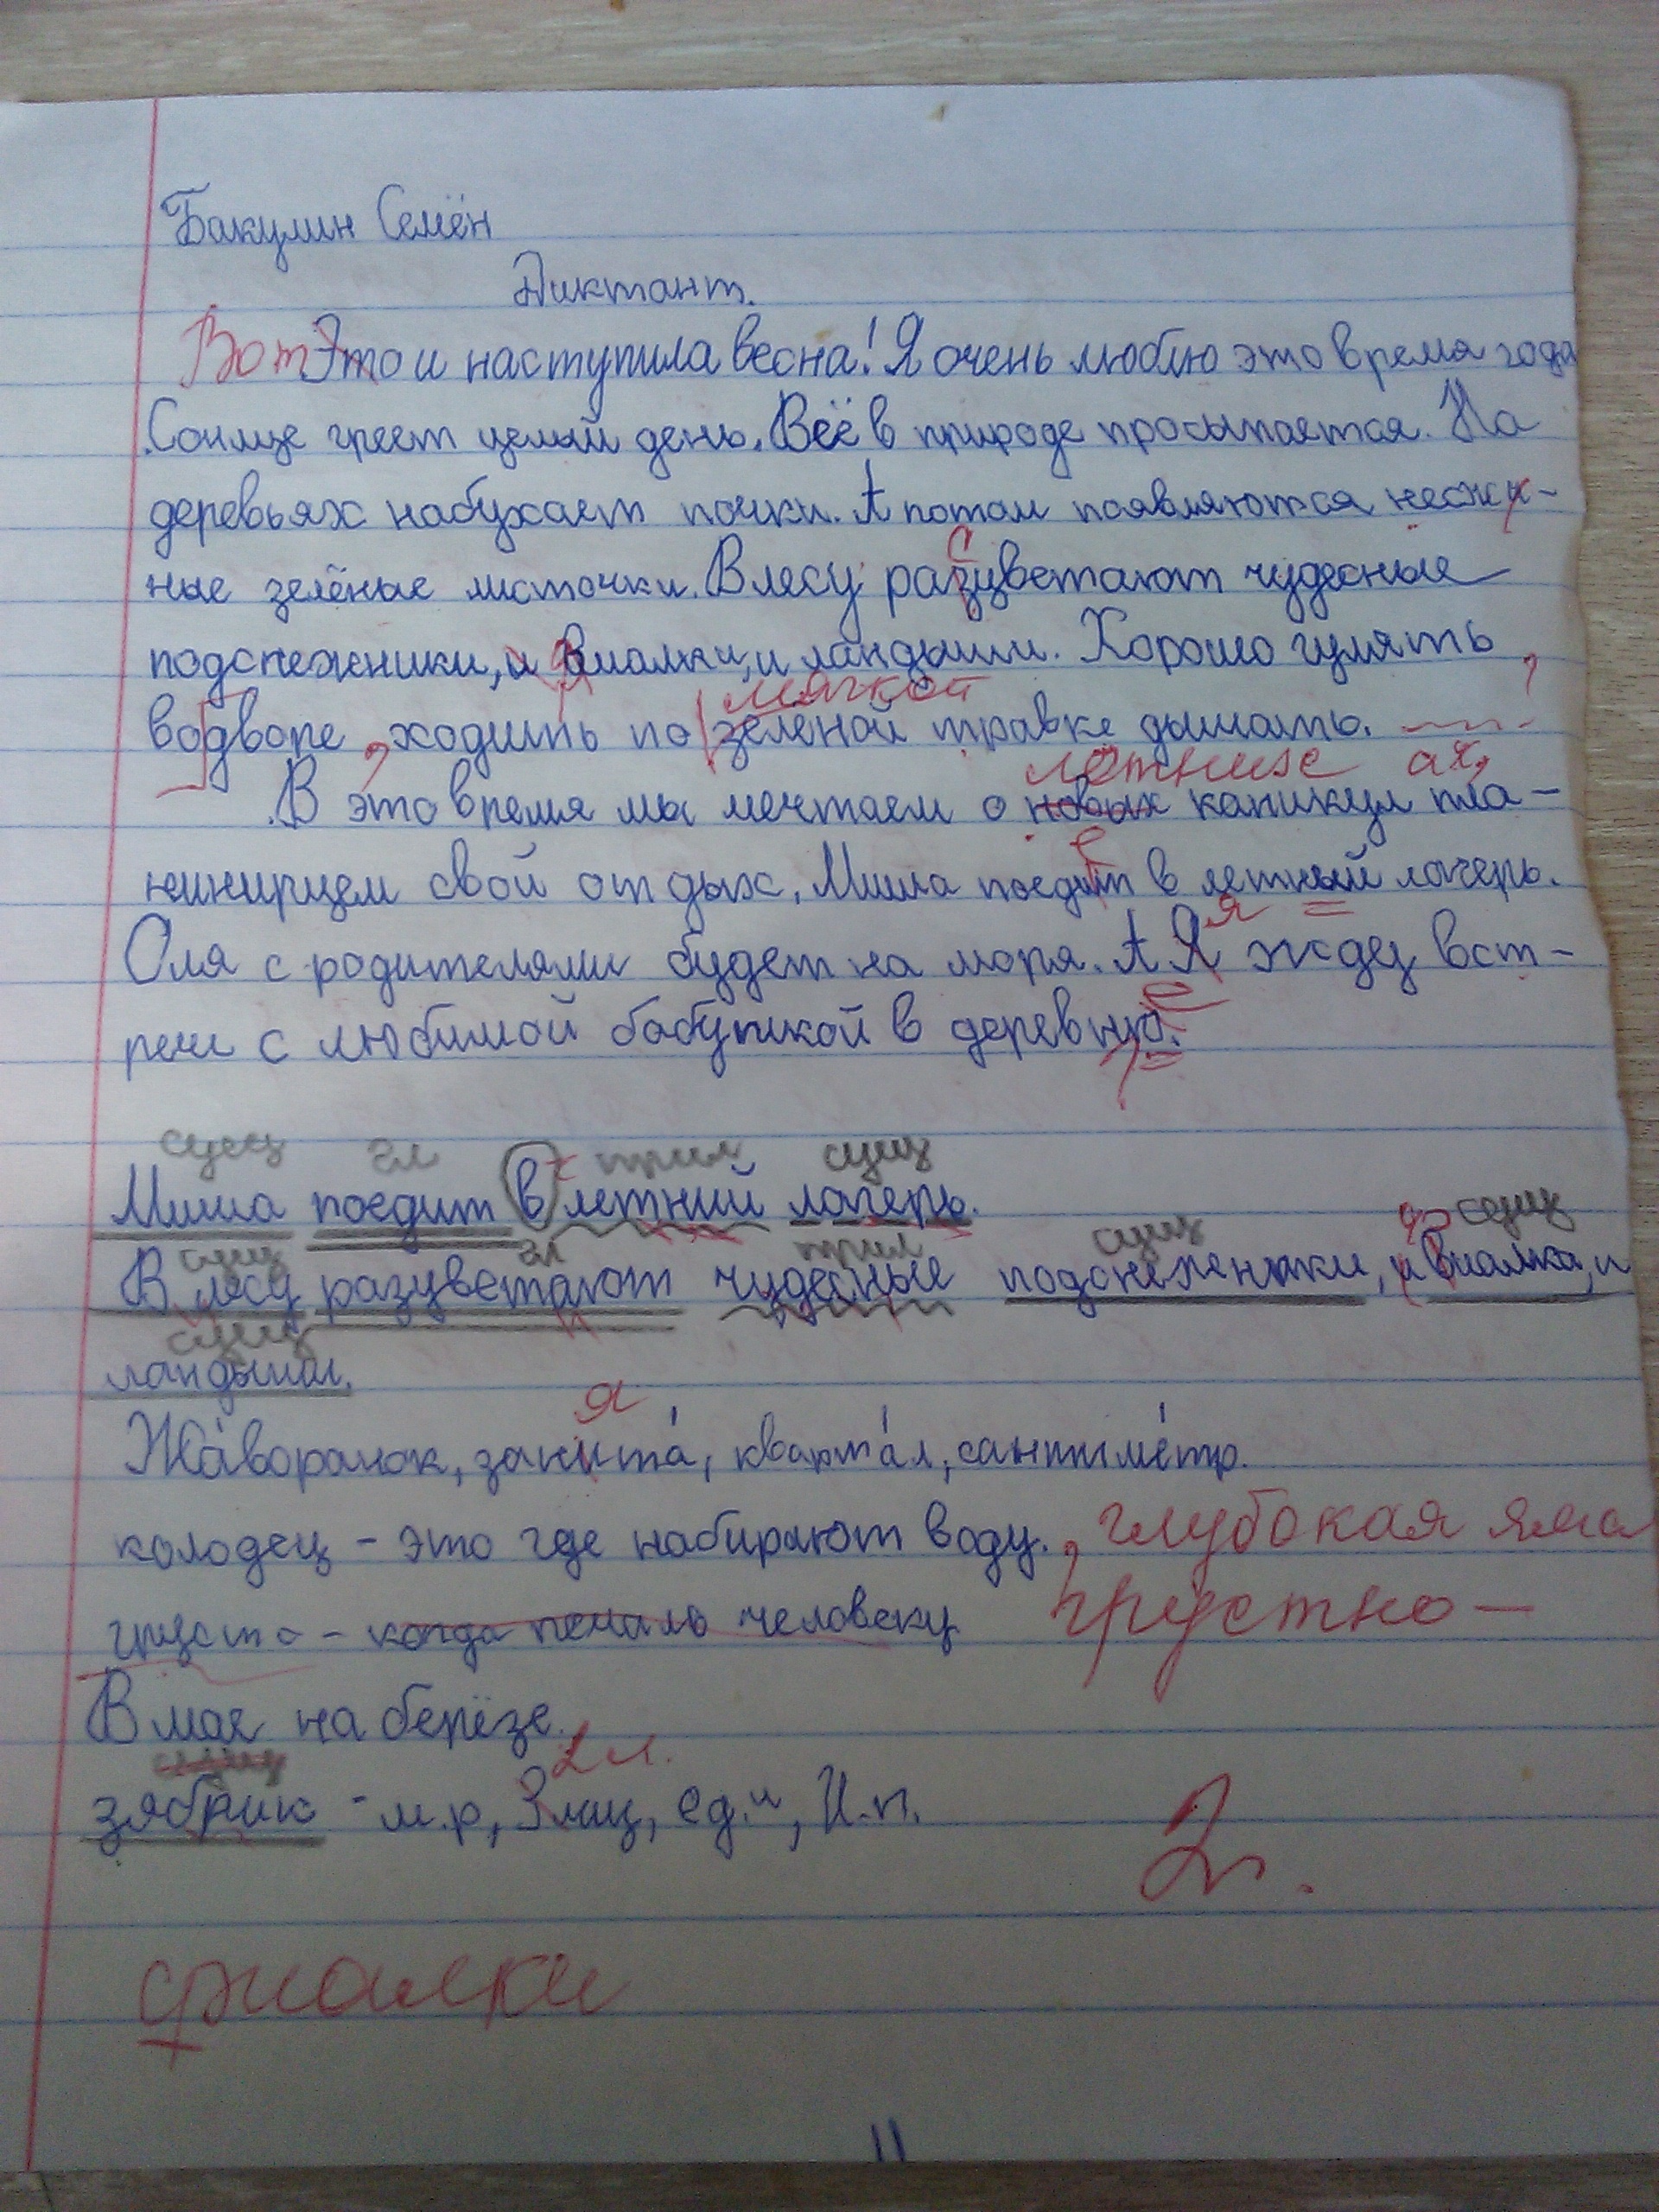 Бакулин Семён
Диктант.
Вот Это и наступила весна! Я очень люблю это время года
.Сонлце греет целый день. Всё в природе просыпается. На
деревьях набухает почки. А потом появляются нежн-
с
ные зелёные листочки. В лесу разцветают чудесные
ф
подснежники, и виалки, и ландыши. Хорошо гулять
мягкой ,
водворе, ходить по зеленой травке дышать.
летних ах,
В это время мы мечтаем о новых каникул пла-
е
нинируем свой отдых, Миша поедит в летный лагерь.
я
Оля с родителями будет на моря. А Я жду вст-
е
речи с любимой бабушкой в деревню.
сущ гл прил сущ
Миша поедит в летний лагерь.
сущ гл прил сущ ф сущ
В лесу разцветают чудесные подснеженики, и виалка, и
сущ
ландыши.
я
Жа́воронок, занита́, кварта́л, сантиме́тр.
колодец - это где набирают воду. , глубокая яма
грусто - когда печаль человеку грустно —
В мае на берёзе.
сущ 2 л.
зяблик - м.р, 3 лиц, ед.ч, И.п.
2.
фиалки